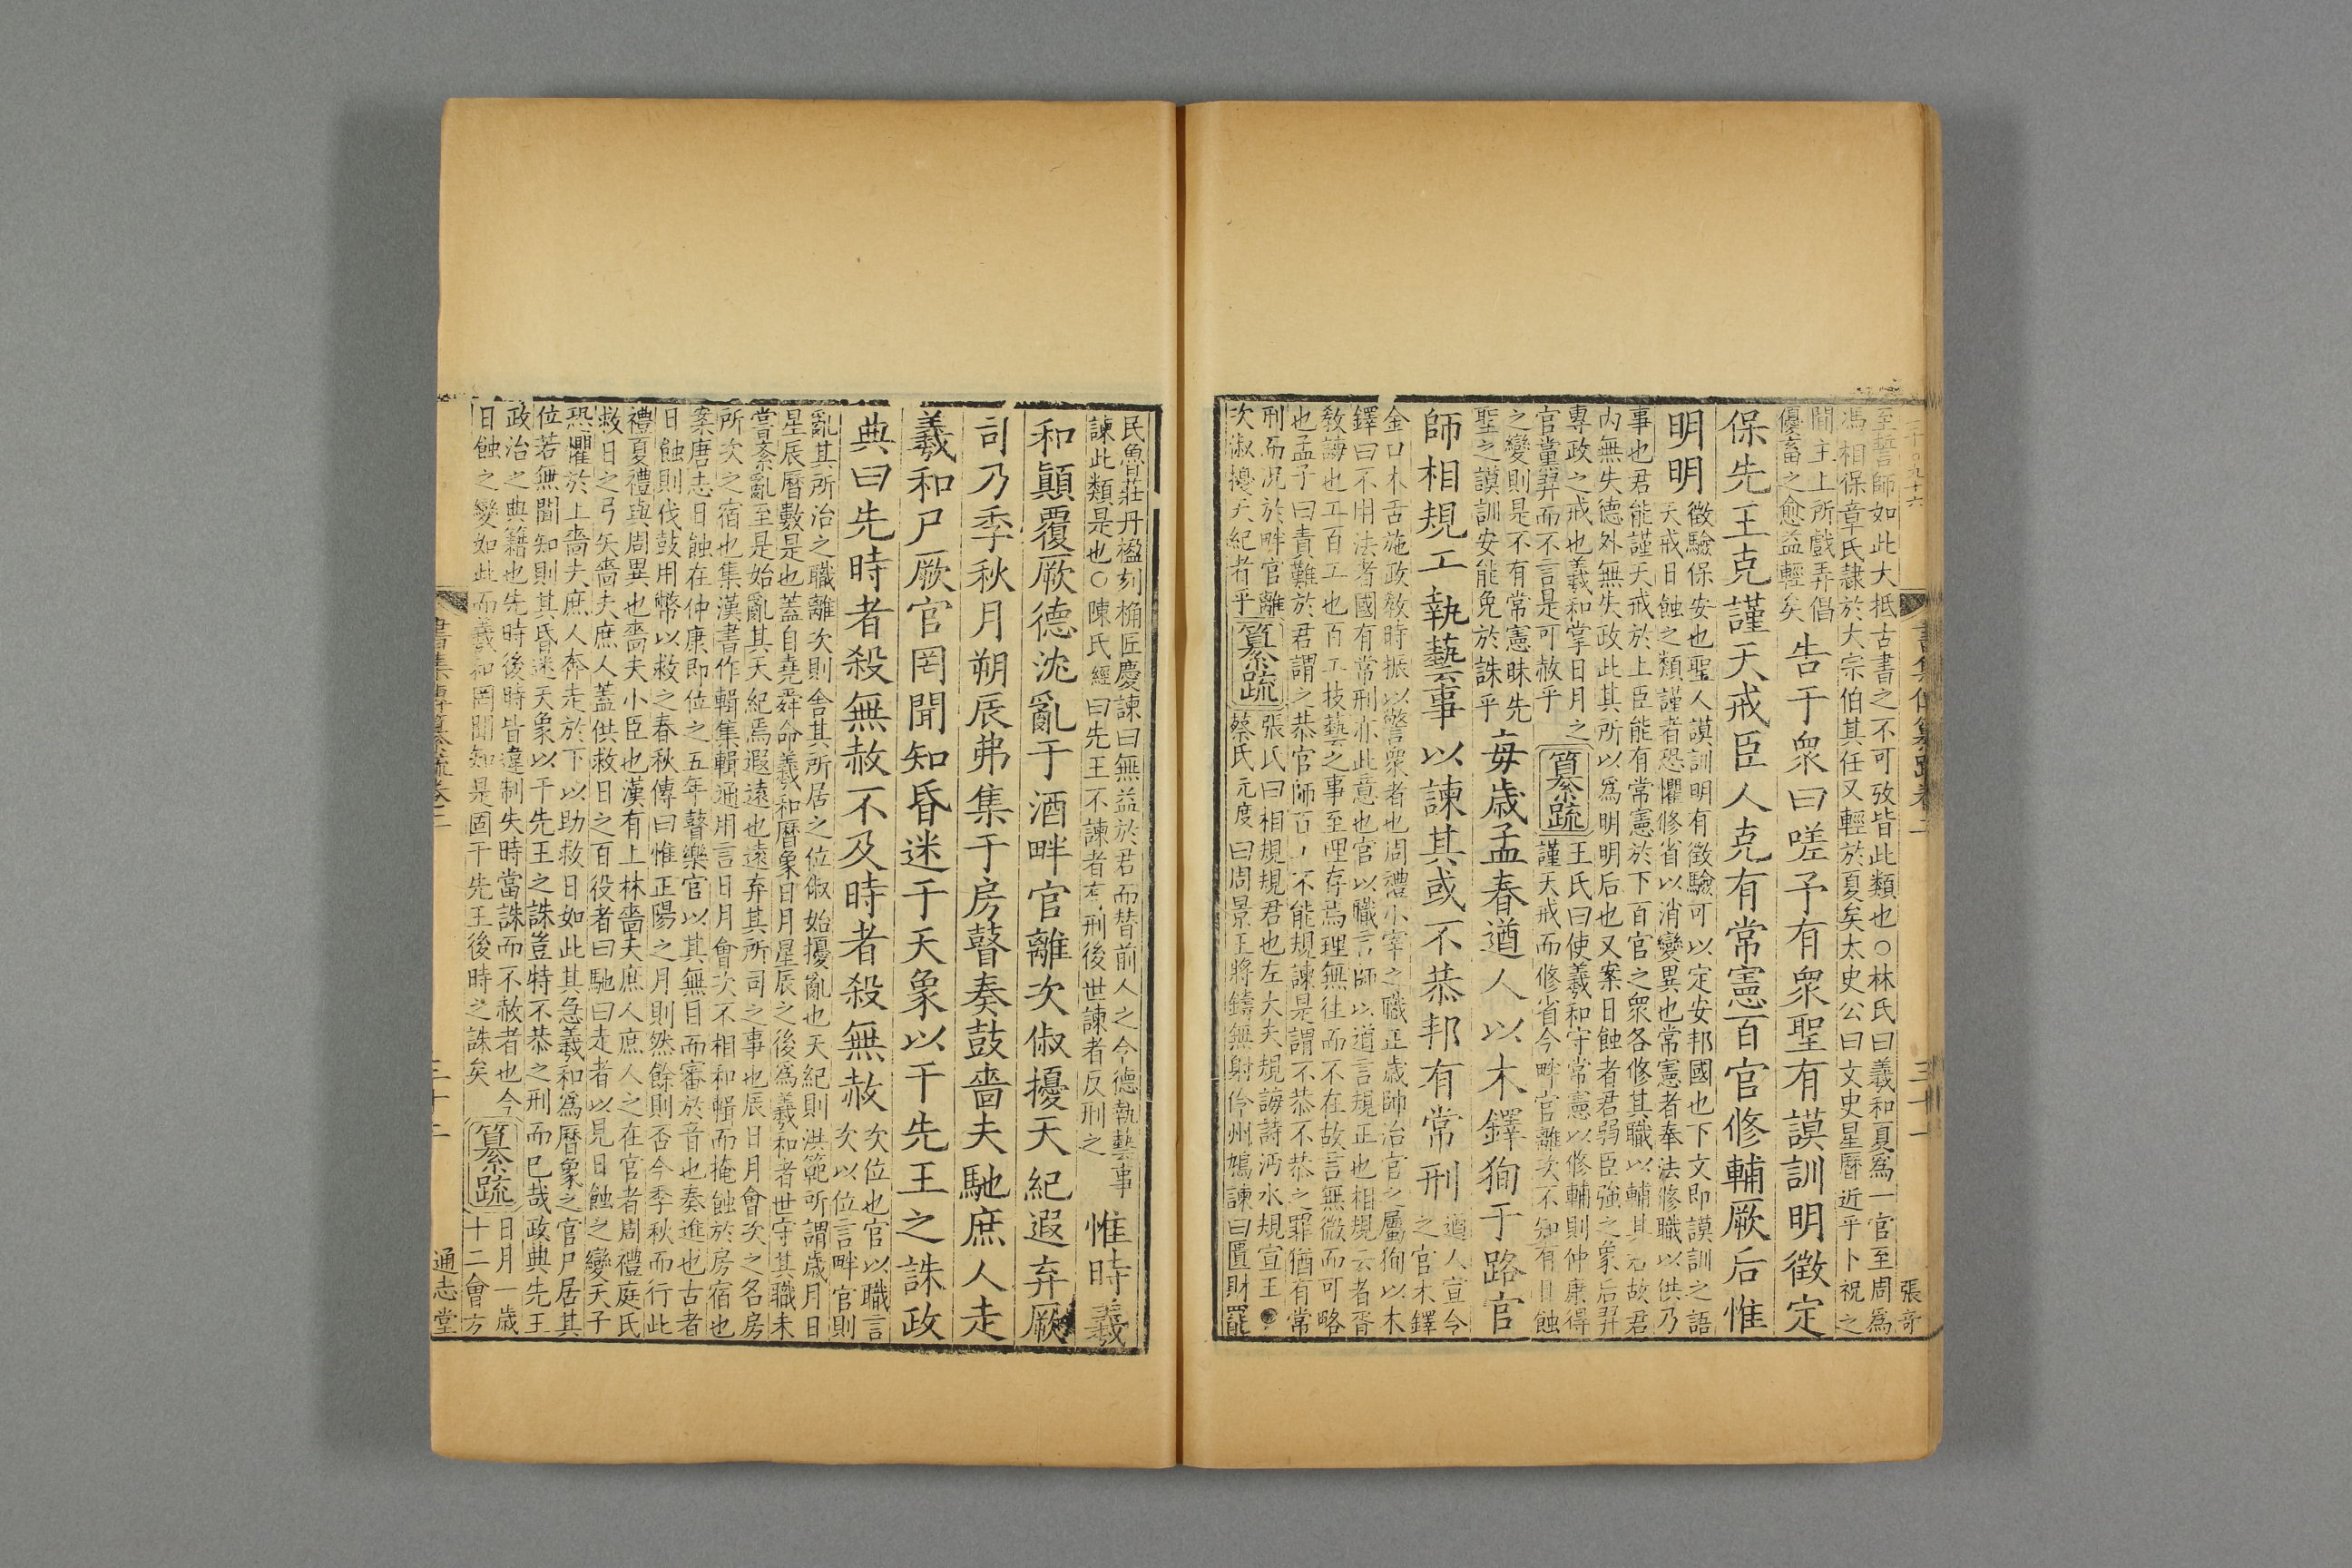 書集傳纂疏卷二 三十一 張奇
至誓師如此大抵古書之不可攷皆此類也○林氏曰羲和夏爲一官至周爲
馮相保章氏隷於大宗伯其任又輕於夏矣太史公曰文史星曆近乎卜祝之
閒主上所戲弄倡
優畜之愈益輕矣
告于衆曰嗟予有衆聖有謨訓明徵定
保先王克謹天戒臣人克有常憲百官修輔厥后惟
明明
徵驗保安也聖人謨訓明有徵驗可以定安邦國也下文即謨訓之語
天戒日蝕之類謹者恐懼修省以消變異也常憲者奉法修職以供乃
事也君能謹天戒於上臣能有常憲於下百官之衆各修其職以輔其君故君
內無失德外無失政此其所以爲明明后也又案日蝕者君弱臣強之象后羿
專政之戒也羲和掌日月之
官黨羿而不言是可赦乎
纂疏
王氏曰使羲和守常憲以修輔則仲康得
謹天戒而修省今畔官離次不知有日蝕
之變則是不有常憲昧先
聖之謨訓安能免於誅乎
每歲孟春遒人以木鐸狥于路官
師相規工執藝事以諫其或不恭邦有常刑
遒人宣令
之官木鐸
金口木舌施政教時振以警衆者也周禮小宰之職正歲帥治官之屬狥以木
鐸曰不用法者國有常刑亦此意也官以職言師以道言規正也相規云者胥
教誨也工百工也百工技藝之事至理存焉理無往而不在故言無微而可略
也孟子曰責難於君謂之恭官師百工不能規諫是謂不恭不恭之罪猶有常
刑而况於畔官離
次俶擾天紀者乎
纂疏
張氏曰相規規君也左大夫規誨詩沔水規宣王●
蔡氏元度曰周景王將鑄無射伶州鳩諫曰匱財罷
民魯莊丹楹刻桷匠慶諫曰無益於君而替前人之令德執藝事
諫此類是也○陳氏經曰先王不諫者有刑後世諫者反刑之
惟時羲
和顚覆厥德沈亂于酒畔官離次俶擾天紀遐弃厥
司乃季秋月朔辰弗集于房瞽奏鼓嗇夫馳庶人走
羲和尸厥官罔聞知昏迷于天象以干先王之誅政
典曰先時者殺無赦不及時者殺無赦
次位也官以職言
次以位言畔官則
亂其所治之職離次則舍其所居之位俶始擾亂也天紀則洪範所謂歲月日
星辰曆數是也蓋自堯舜命羲和曆象日月星辰之後爲羲和者世守其職未
嘗紊亂至是始亂其天紀焉遐遠也遠弃其所司之事也辰日月會次之名房
所次之宿也集漢書作輯集輯通用言日月會次不相和輯而掩蝕於房宿也
案唐志日蝕在仲康即位之五年瞽樂官以其無目而審於音也奏進也古者
日蝕則伐鼓用幣以救之春秋傳曰惟正陽之月則然餘則否今季秋而行此
禮夏禮與周異也嗇夫小臣也漢有上林嗇夫庶人庶人之在官者周禮庭氏
救日之弓矢嗇夫庶人蓋供救日之百役者曰馳曰走者以見日蝕之變天子
恐懼於上嗇夫庶人奔走於下以助救日如此其急羲和爲曆象之官尸居其
位若無聞知則其昏迷天象以干先王之誅豈特不恭之刑而已哉政典先王
政治之典籍也先時後時皆違制失時當誅而不赦者也今
日蝕之變如此而羲和罔聞知是固干先王後時之誅矣
纂疏
日月一歲
十二會方
書集傳纂疏卷二 三十二 通志堂